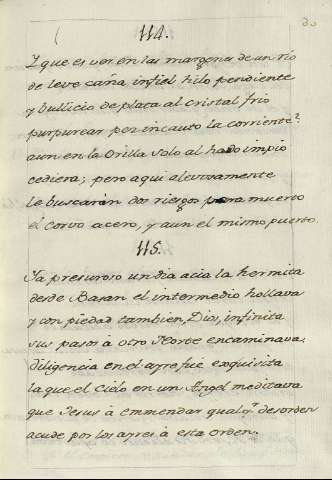 114.
Y que es ver en las margenes de un rio
de leve caña infiel hilo pendiente
y bullicio de plata al cristal frio
purpurear por incauto la corriente?
aun en la Orilla solo al hado impio
cediera; pero aqui alevosamente
le buscarán dos riesgos para muerto
el corvo acero, y aun el mismo puerto.
115.
Ya presuroso un dia acia la hermita
desde Bazan el intermedio hollava
y con piedad tambien, Dios, infinita
sus pasos à otro Norte encaminava:
diligencia en el ayre fue exquisita
la que el Cielo en un Angel meditava
que Jesus à emmendar qualqr. desorden
acude por los ayres à esta Orden.